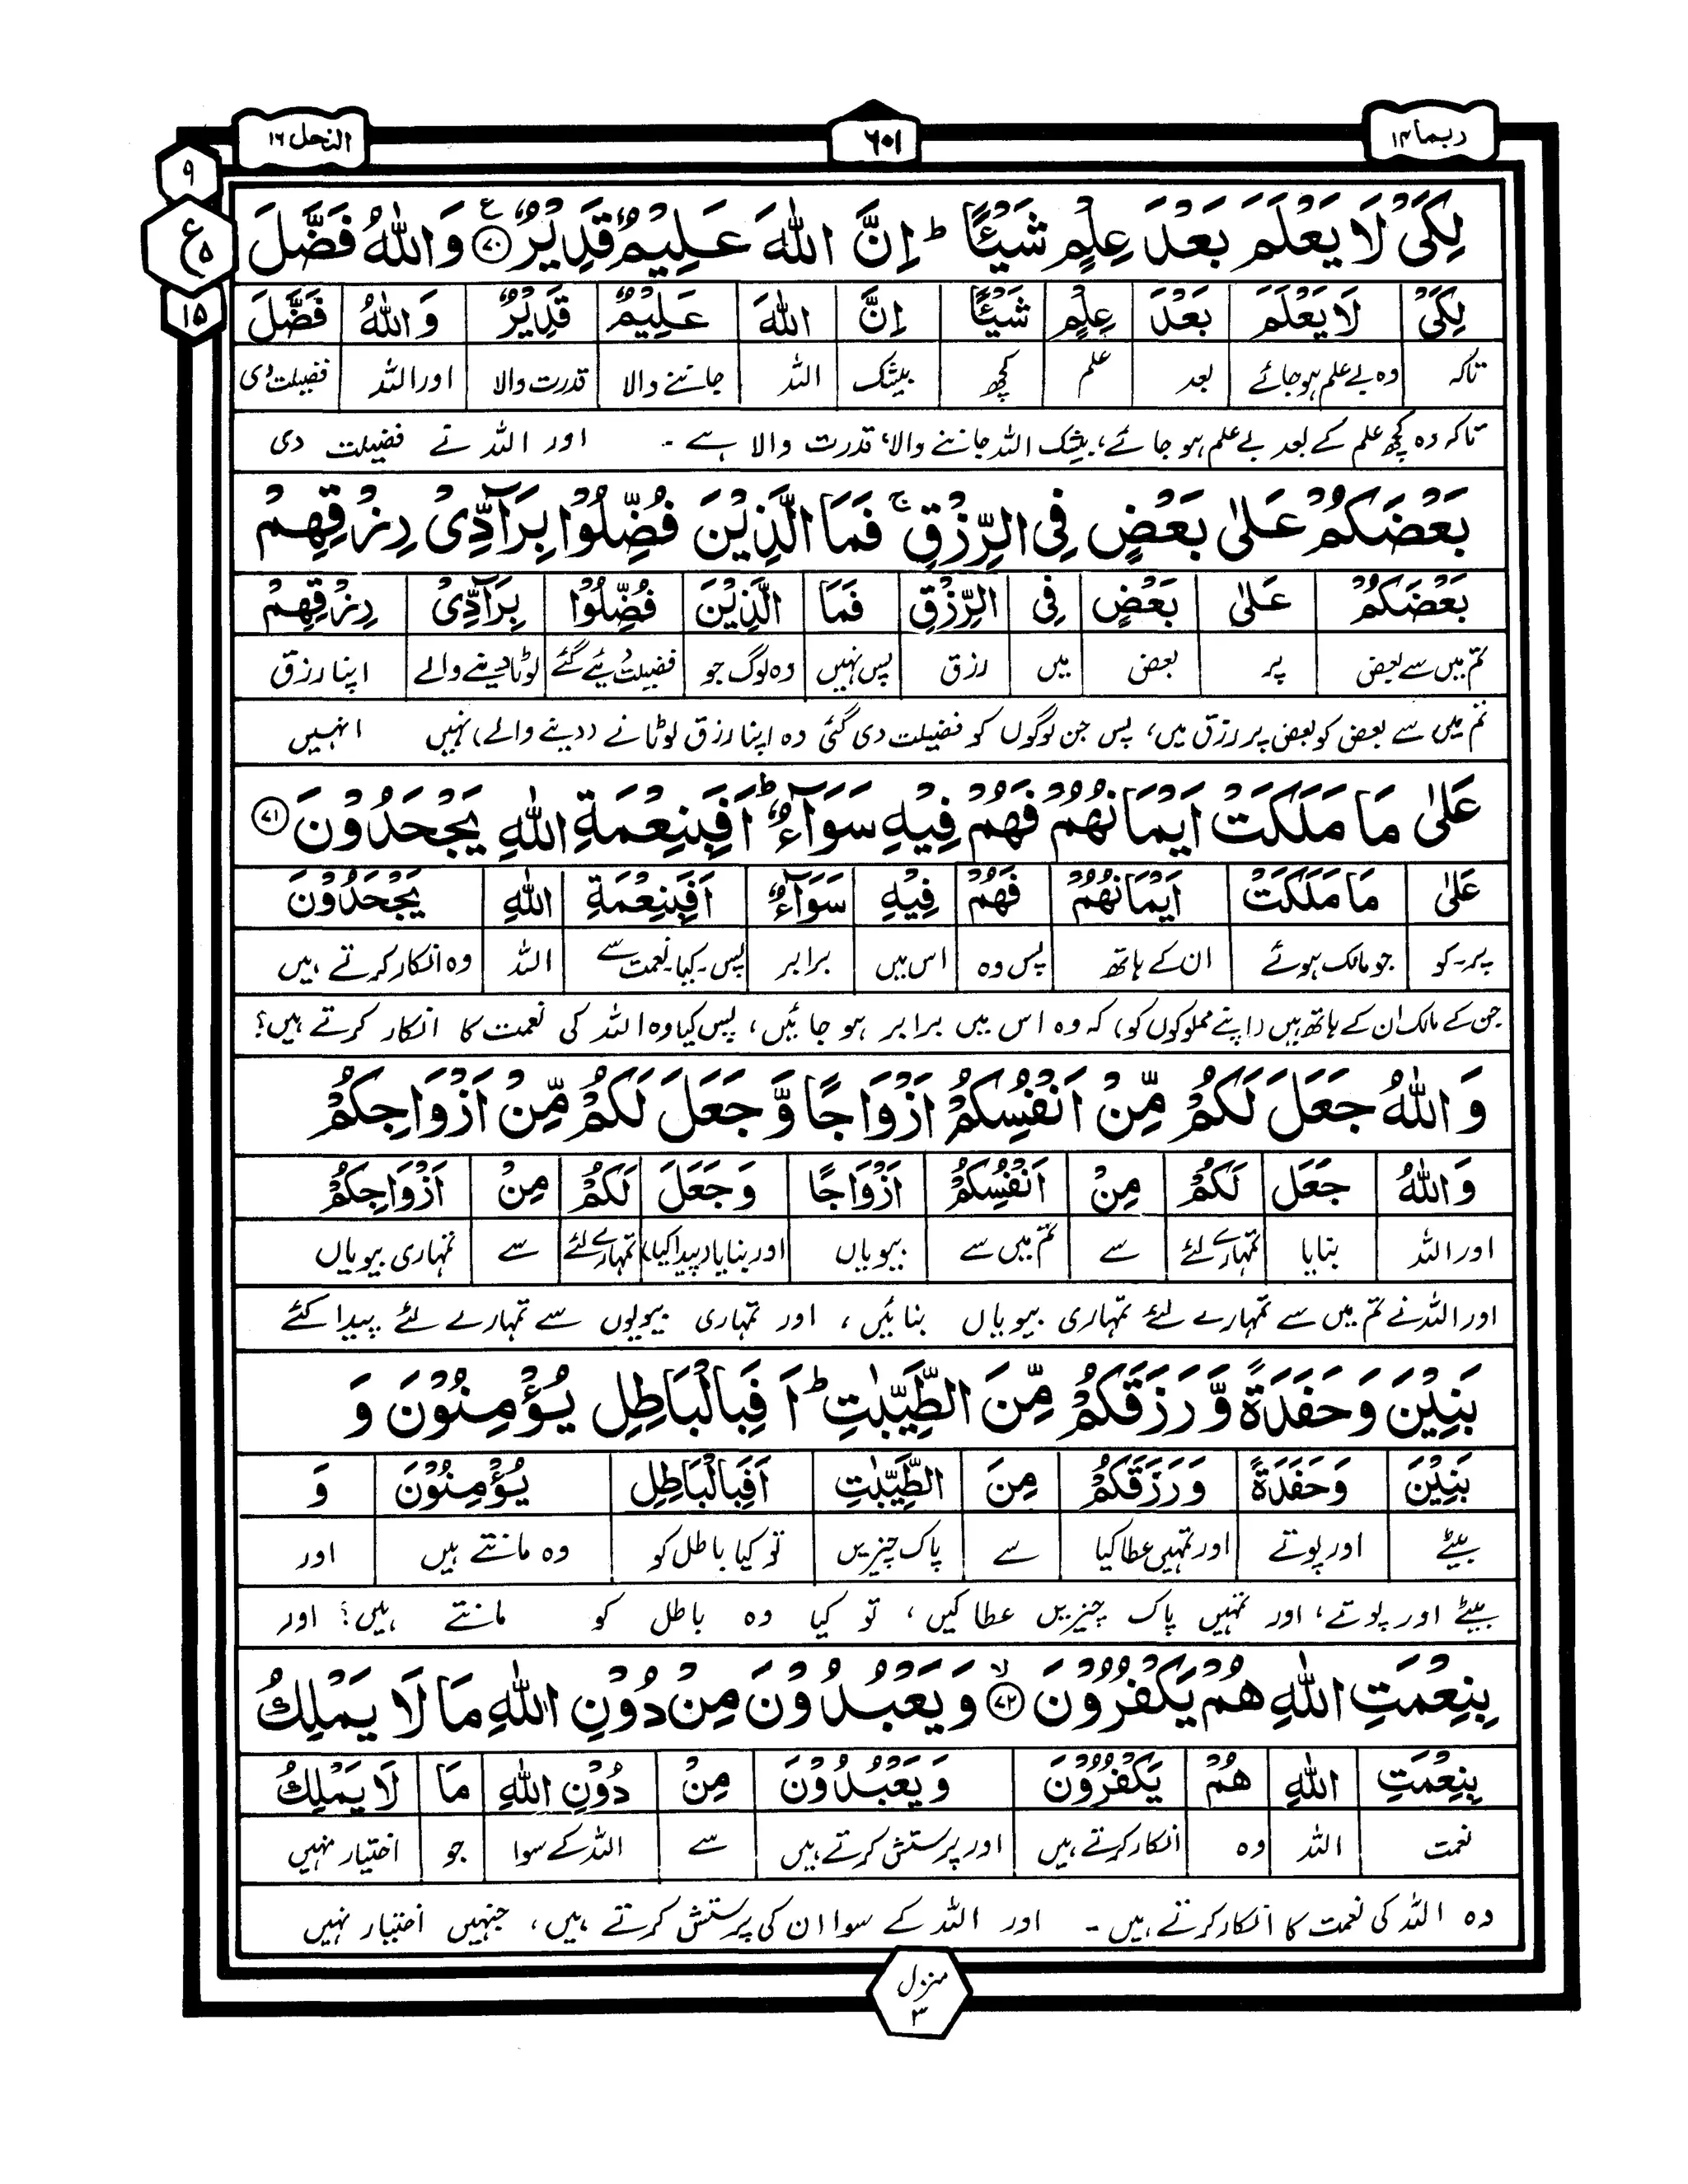 ربما ۱۴
۶۰۱
النحل ۱۶
۹
ع ۵
۱۵
لِكَیْ لَا یَعْلَمَ بَعْدَ عِلْمٍ شَیْــٴًـا ؕ اِنَّ اللّٰهَ عَلِیْمٌ قَدِیْرٌ ﴿۷۰﴾ ع وَ اللّٰهُ فَضَّلَ
لِكَیْ لَا یَعْلَمَ بَعْدَ عِلْمٍ شَیْــٴًـا اِنَّ اللّٰهَ عَلِیْمٌ قَدِیْرٌ وَ اللّٰهُ فَضَّلَ
تاکہ وہ بے علم ہو جائے بعد علم کچھ بیشک اللہ جاننے والا قدرت والا اور اللہ فضیلت دی
تاکہ وہ کچھ علم کے بعد بے علم ہو جائے، بیشک اللہ جاننے والا، قدرت والا ہے ۔ اور اللہ نے فضیلت دی
بَعْضَكُمْ عَلٰی بَعْضٍ فِی الرِّزْقِ ۚ فَمَا الَّذِیْنَ فُضِّلُوْا بِرَآدِّیْ رِزْقِهِمْ
بَعْضَكُمْ عَلٰی بَعْضٍ فِی الرِّزْقِ فَمَا الَّذِیْنَ فُضِّلُوْا بِرَآدِّیْ رِزْقِهِمْ
تم میں سے بعض پر بعض میں رزق پس نہیں وہ لوگ جو فضیلت دیئے گئے لوٹا دینے والے اپنا رزق
تم میں سے بعض کو بعض پر رزق میں، پس جن لوگوں کو فضیلت دی گئی وہ اپنا رزق لوٹانے (دینے والے) نہیں انہیں
عَلٰی مَا مَلَكَتْ اَیْمَانُهُمْ فَهُمْ فِیْهِ سَوَآءٌ ؕ اَفَبِنِعْمَةِ اللّٰهِ یَجْحَدُوْنَ ﴿۷۱﴾
عَلٰی مَا مَلَكَتْ اَیْمَانُهُمْ فَهُمْ فِیْهِ سَوَآءٌ اَفَبِنِعْمَةِ اللّٰهِ یَجْحَدُوْنَ
پر۔کو جو مالک ہوئے ان کے ہاتھ پس وہ اس میں برابر پس۔کیا۔نعمت سے اللہ وہ انکار کرتے ہیں
جن کے مالک ان کے ہاتھ ہیں (اپنے مملوکوں کو) کہ وہ اس میں برابر ہو جائیں، پس کیا وہ اللہ کی نعمت کا انکار کرتے ہیں؟
وَ اللّٰهُ جَعَلَ لَكُمْ مِّنْ اَنْفُسِكُمْ اَزْوَاجًا وَّ جَعَلَ لَكُمْ مِّنْ اَزْوَاجِكُمْ
وَ اللّٰهُ جَعَلَ لَكُمْ مِنْ اَنْفُسِكُمْ اَزْوَاجًا وَ جَعَلَ لَكُمْ مِنْ اَزْوَاجِكُمْ
اور اللہ بنایا تمہارے لئے سے تم میں سے بیویاں اور بنایا (پیدا کیا) تمہارے لئے سے تمہاری بیویاں
اور اللہ نے تم میں سے تمہارے لئے تمہاری بیویاں بنائیں، اور تمہاری بیویوں سے تمہارے لئے پیدا کئے
بَنِیْنَ وَ حَفَدَةً وَّ رَزَقَكُمْ مِّنَ الطَّیِّبٰتِ ؕ اَفَبِالْبَاطِلِ یُؤْمِنُوْنَ وَ
بَنِیْنَ وَ حَفَدَةً وَ رَزَقَكُمْ مِنَ الطَّیِّبٰتِ اَفَبِالْبَاطِلِ یُؤْمِنُوْنَ وَ
بیٹے اور پوتے اور تمہیں عطا کیا سے پاک چیزیں تو کیا باطل کو وہ مانتے ہیں اور
بیٹے اور پوتے، اور تمہیں پاک چیزیں عطا کیں، تو کیا وہ باطل کو مانتے ہیں؟ اور
بِنِعْمَتِ اللّٰهِ هُمْ یَكْفُرُوْنَ ﴿۷۲﴾ ۙ وَ یَعْبُدُوْنَ مِنْ دُوْنِ اللّٰهِ مَا لَا یَمْلِكُ
بِنِعْمَتِ اللّٰهِ هُمْ یَكْفُرُوْنَ وَ یَعْبُدُوْنَ مِنْ دُوْنِ اللّٰهِ مَا لَا یَمْلِكُ
نعمت اللہ وہ انکار کرتے ہیں اور پرستش کرتے ہیں سے اللہ کے سوا جو اختیار نہیں
وہ اللہ کی نعمت کا انکار کرتے ہیں ۔ اور اللہ کے سوا ان کی پرستش کرتے ہیں، جنہیں اختیار نہیں
منزل ۳